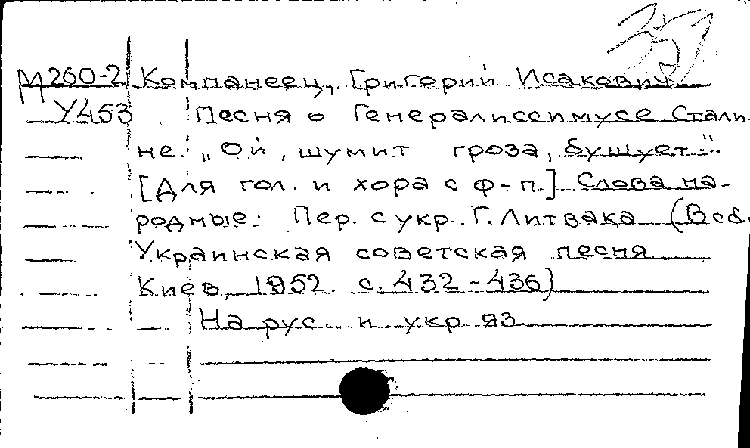 357
М260-2 Компанеец, Григорий Исакович
У453 Песня о Генералиссимусе Стали-
не. "Ой, шумит гроза, бушует..".
[Для гол. и хора с ф-п.] Слова на-
родные. Пер. с укр. Г. Литвака (В сб.
Украинская советская песня
Киев, 1952. с. 432-436)
На рус. и укр. яз